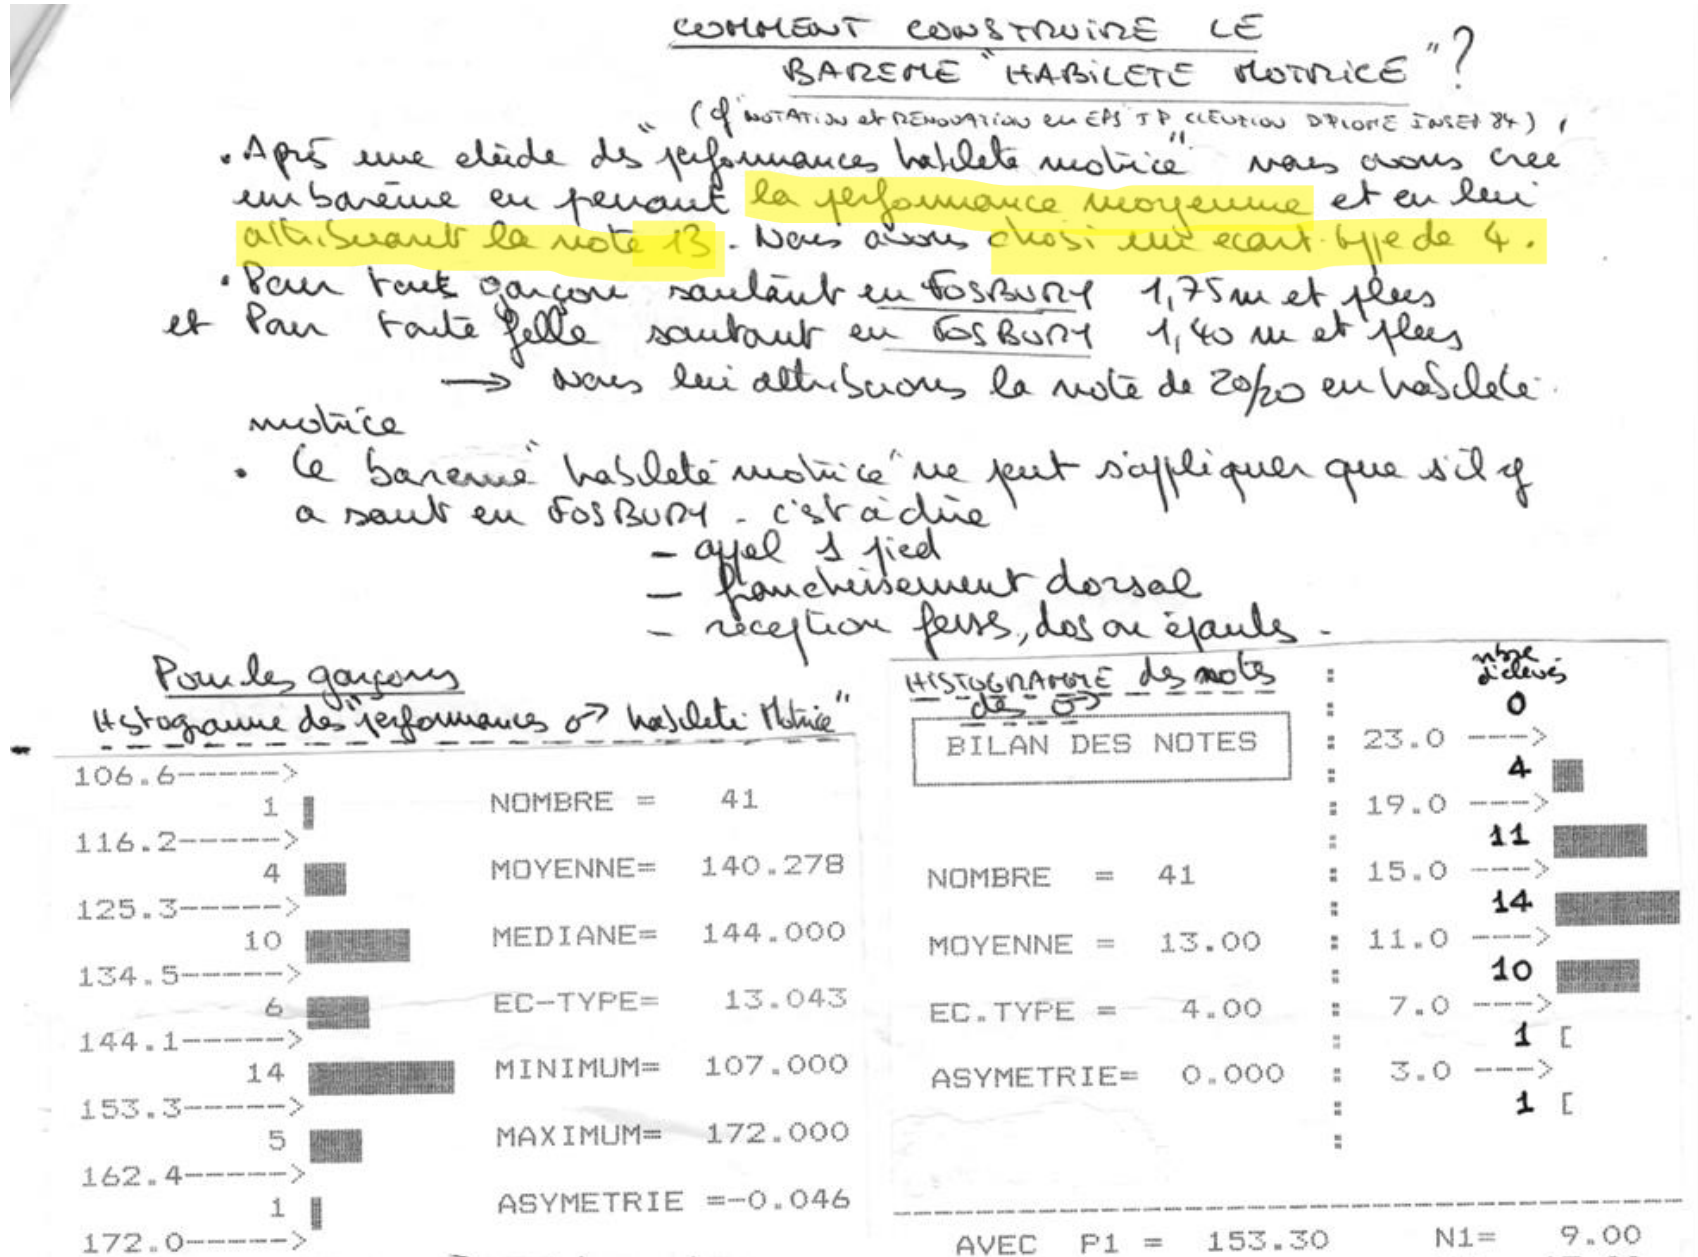 COMMENT CONSTRUIRE LE
BAREME "HABILETE MOTRICE"?
(cf "NOTATION et RENOVATION en EPS" J P CLEUZIOU DIPLOME INSEP 84)
• Après une étude des "performances habileté motrice" nous avons créé
un barème en prenant la performance moyenne et en lui
attribuant la note 13. Nous avons choisi un écart-type de 4.
• Pour tout garçon sautant en FOSBURY 1,75m et plus
et Pour toute fille sautant en FOSBURY 1,40 m et plus
→ Nous lui attribuons la note de 20/20 en habileté
motrice
• Ce barème "habileté motrice" ne peut s'appliquer que s'il y
a saut en FOSBURY - c'est à dire
- appel 1 pied
- franchissement dorsal
- réception fesses, dos ou épaules -
Pour les garçons
Histogramme des "performances ♂ habileté Motrice"
106.6------>
1
116.2------>
4
125.3------>
10
134.5------>
6
144.1------>
14
153.3------>
5
162.4------>
1
172.0------>
NOMBRE = 41
MOYENNE= 140.278
MEDIANE= 144.000
EC-TYPE= 13.043
MINIMUM= 107.000
MAXIMUM= 172.000
ASYMETRIE =-0.046
HISTOGRAMME des notes
des ♂
BILAN DES NOTES
NOMBRE = 41
MOYENNE = 13.00
EC.TYPE = 4.00
ASYMETRIE= 0.000
nbre
d'élèves
0
23.0 ---->
4
19.0 ---->
11
15.0 ---->
14
11.0 ---->
10
7.0 ---->
1 [
3.0 ---->
1 [
AVEC P1 = 153.30 N1= 9.00